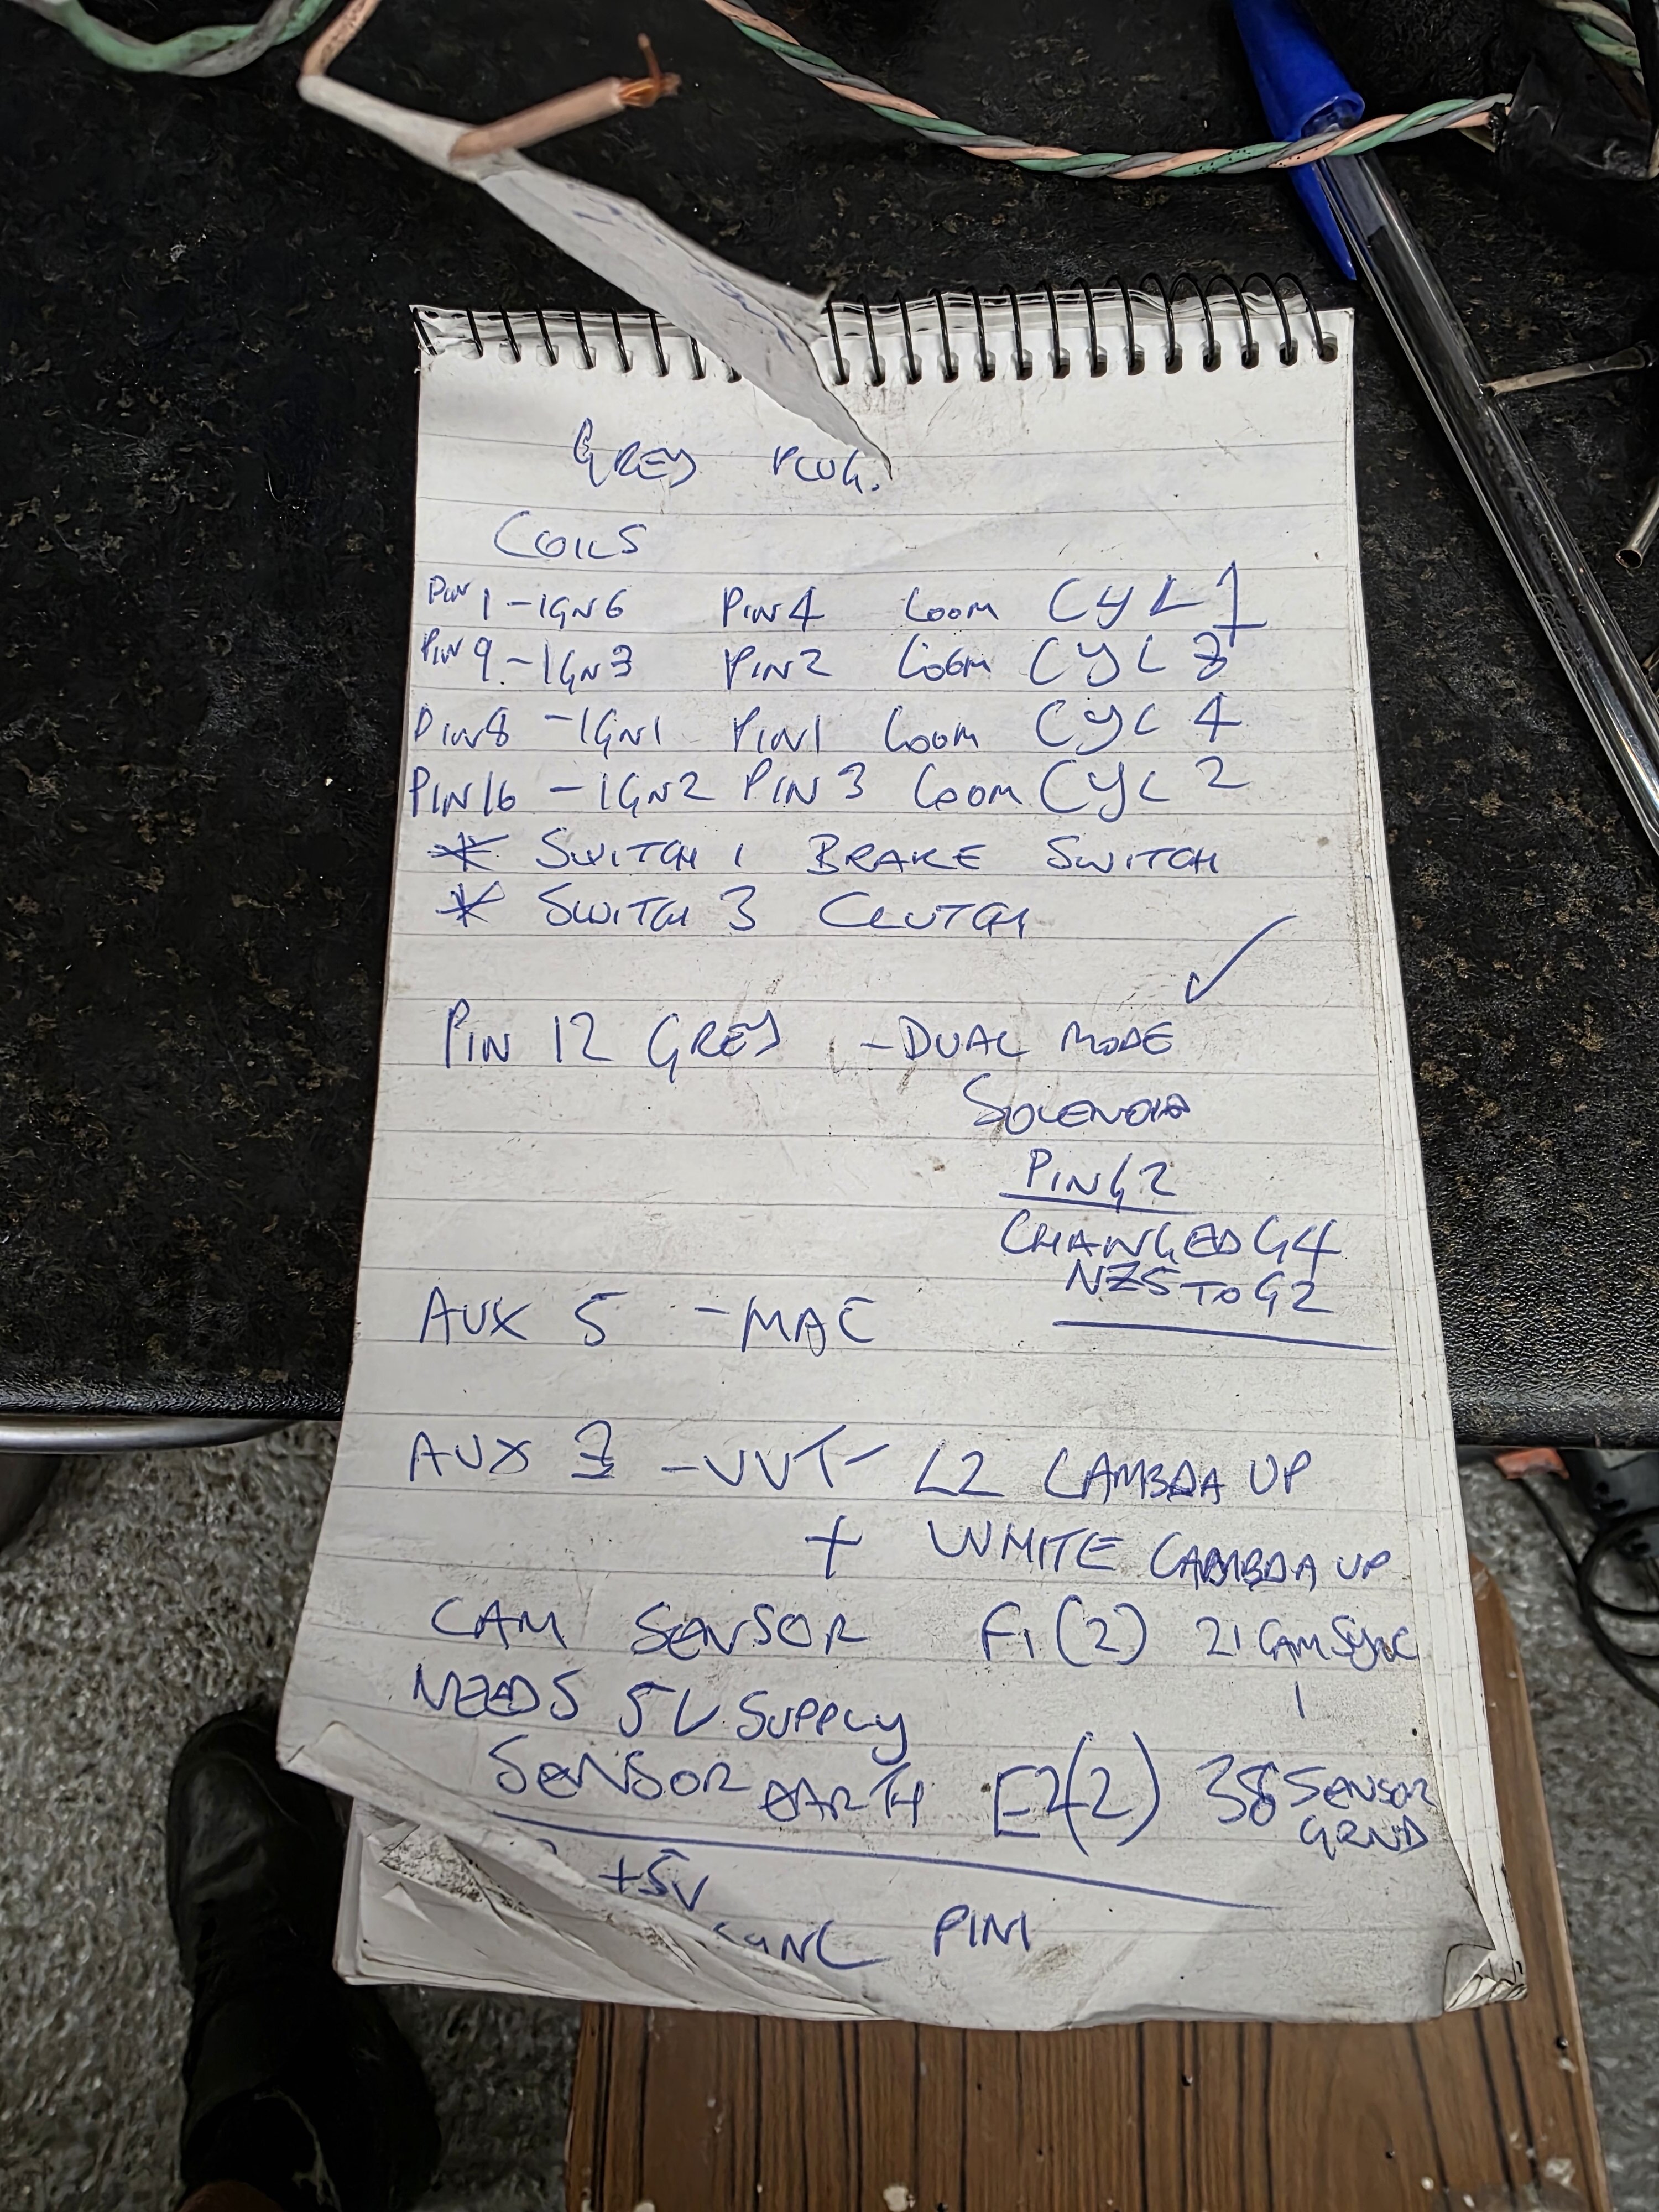 GREY PLUG.
COILS
PIN 1 - IGN6 PIN4 LOOM CYL 1
PIN 9. - IGN3 PIN2 LOOM CYL 3
PIN8 - IGN1 PIN1 LOOM CYL 4
PIN16 - IGN2 PIN 3 LOOM CYL 2
* SWITCH 1 BRAKE SWITCH
* SWITCH 3 CLUTCH
PIN 12 GREY - DUAL MODE ✓
SOLENOID
PIN G2
CHANGED G4
NZS TO G2
AUX 5 - MAC
AUX 3 - VVT - L2 LAMBDA UP
+ WHITE LAMBDA UP
CAM SENSOR F1 (2) 21 CAM SYNC
NEEDS 5V SUPPLY 1
SENSOR EARTH E2(2) 38 SENSOR
GRND
+5V
SYNC PIN1